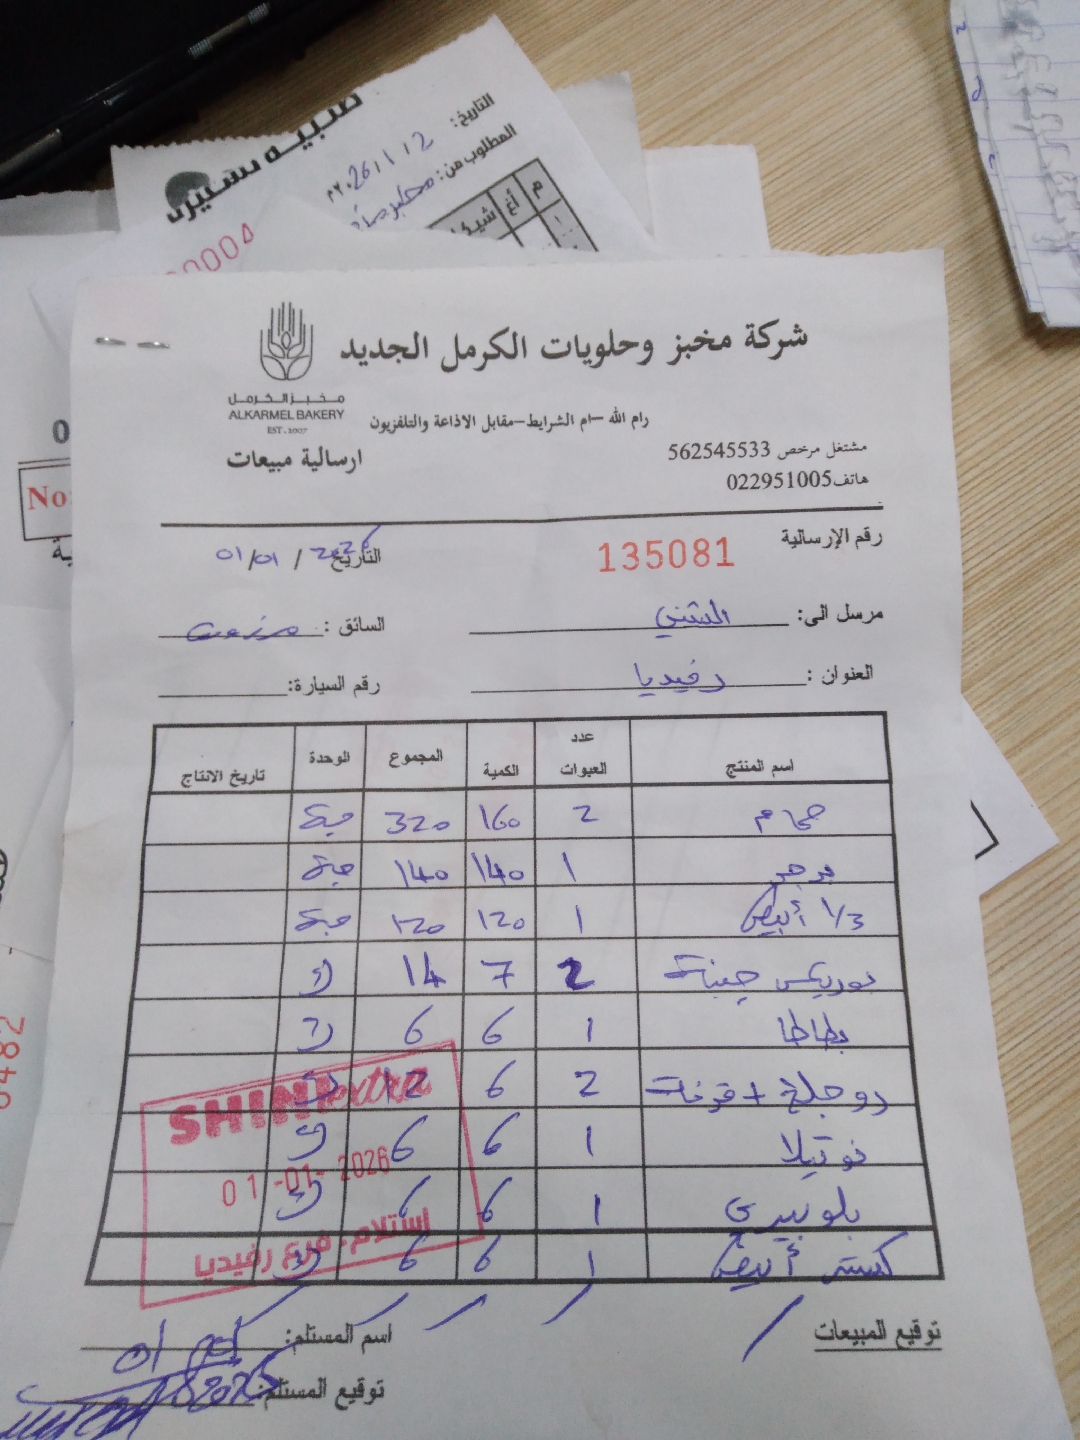 صبيه نشيرت
التاريخ: 2 / 1 / 26٢٠م
المطلوب من:
م
أغ
شيكل
0004
0
No:
ية
0482
شركة مخبز وحلويات الكرمل الجديد
مخبز الكرمل
ALKARMEL BAKERY
EST. 2007
رام الله –ام الشرايط–مقابل الاذاعة والتلفزيون
ارسالية مبيعات
مشتغل مرخص 562545533
هاتف022951005
رقم الإرسالية 135081 التاريخ 01/01 / 2026
مرسل الى: الشني السائق :
العنوان : رفيديا رقم السيارة:
اسم المنتج عدد العبوات الكمية المجموع الوحدة تاريخ الانتاج
حمام 2 160 320 حبة
برجر 1 140 140 حبة
1/3 أبيض 1 120 120 حبة
جبنة 2 7 14 ك
بطاطا 1 6 6 ك
+ قرفة 2 6 12 ك
نوتيلا 1 6 6 ك
بلوبيري 1 6 6 ك
أبيض 1 6 6 ك
SHINI extra
01-01-2026
استلام. فرع رفيديا
توقيع المبيعات
اسم المستلم:
توقيع المستلم: